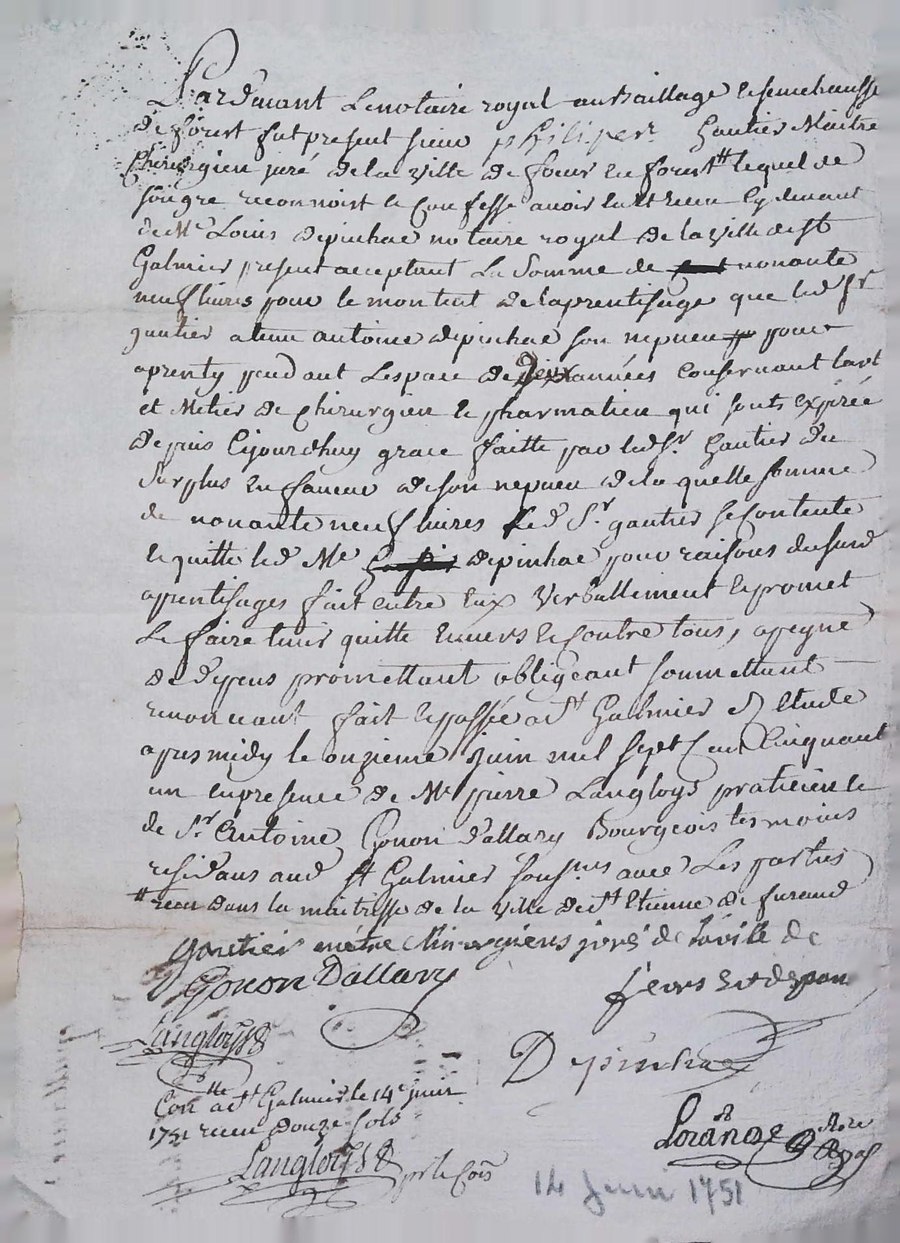 Pardevant Le notaire royal au Baillage & senechaussé
de forest fut present sieur philiper Gautier Maitre
Chirurgien juré de la Ville de feurs en forest # lequel de
son gre reconnoist & Confesse avoir eu et receu Cy devant
de Me Louis depinhac notaire royal de la Ville de st
Galmier present acceptant La Somme de nonante
neuf livres pour le montent de laprentisage que led sr
gautier a tenu antoine depinhac son nepveu pour
aprenty pendant Lespace de Deux années Consernant lart
et Metier de Chirurgien & pharmatien qui sonts expirée
depuis Cejourdhuy grace faitte par led sr. Gautier du
Surplus en faveur de son nepveu de la quelle somme
de nonante neuf livres Led Sr. gautier se Contente
& quitte led Me depinhac pour raisons dususd
aprentisages fait entre Eux Verballement & promet
Le faire tenir quitte Envers & Contre tous, a peyne
de depens promettant obligeant soumettant
renonceant fait & passée a st Galmier Etude
apres midy le onzieme juin mil sept Cent Cinquant
un en presence de Me pierre Langloys praticien &
de Sr. Antoine Gonon d'allary Bourgeois tesmoins
residans aud st Galmier soussnes avec Les parties
# receu dans la maitresse de la Ville de st Etienne de furand
goutier métre Chirurgiens joré de la ville de
feurs
Gonon Dallary
Langloys
Depinhac
Con lle a st Galmier le 14e juin
1751 receu douze sols
Langloys
Loränge
nore
Royal
14 Juin 1751